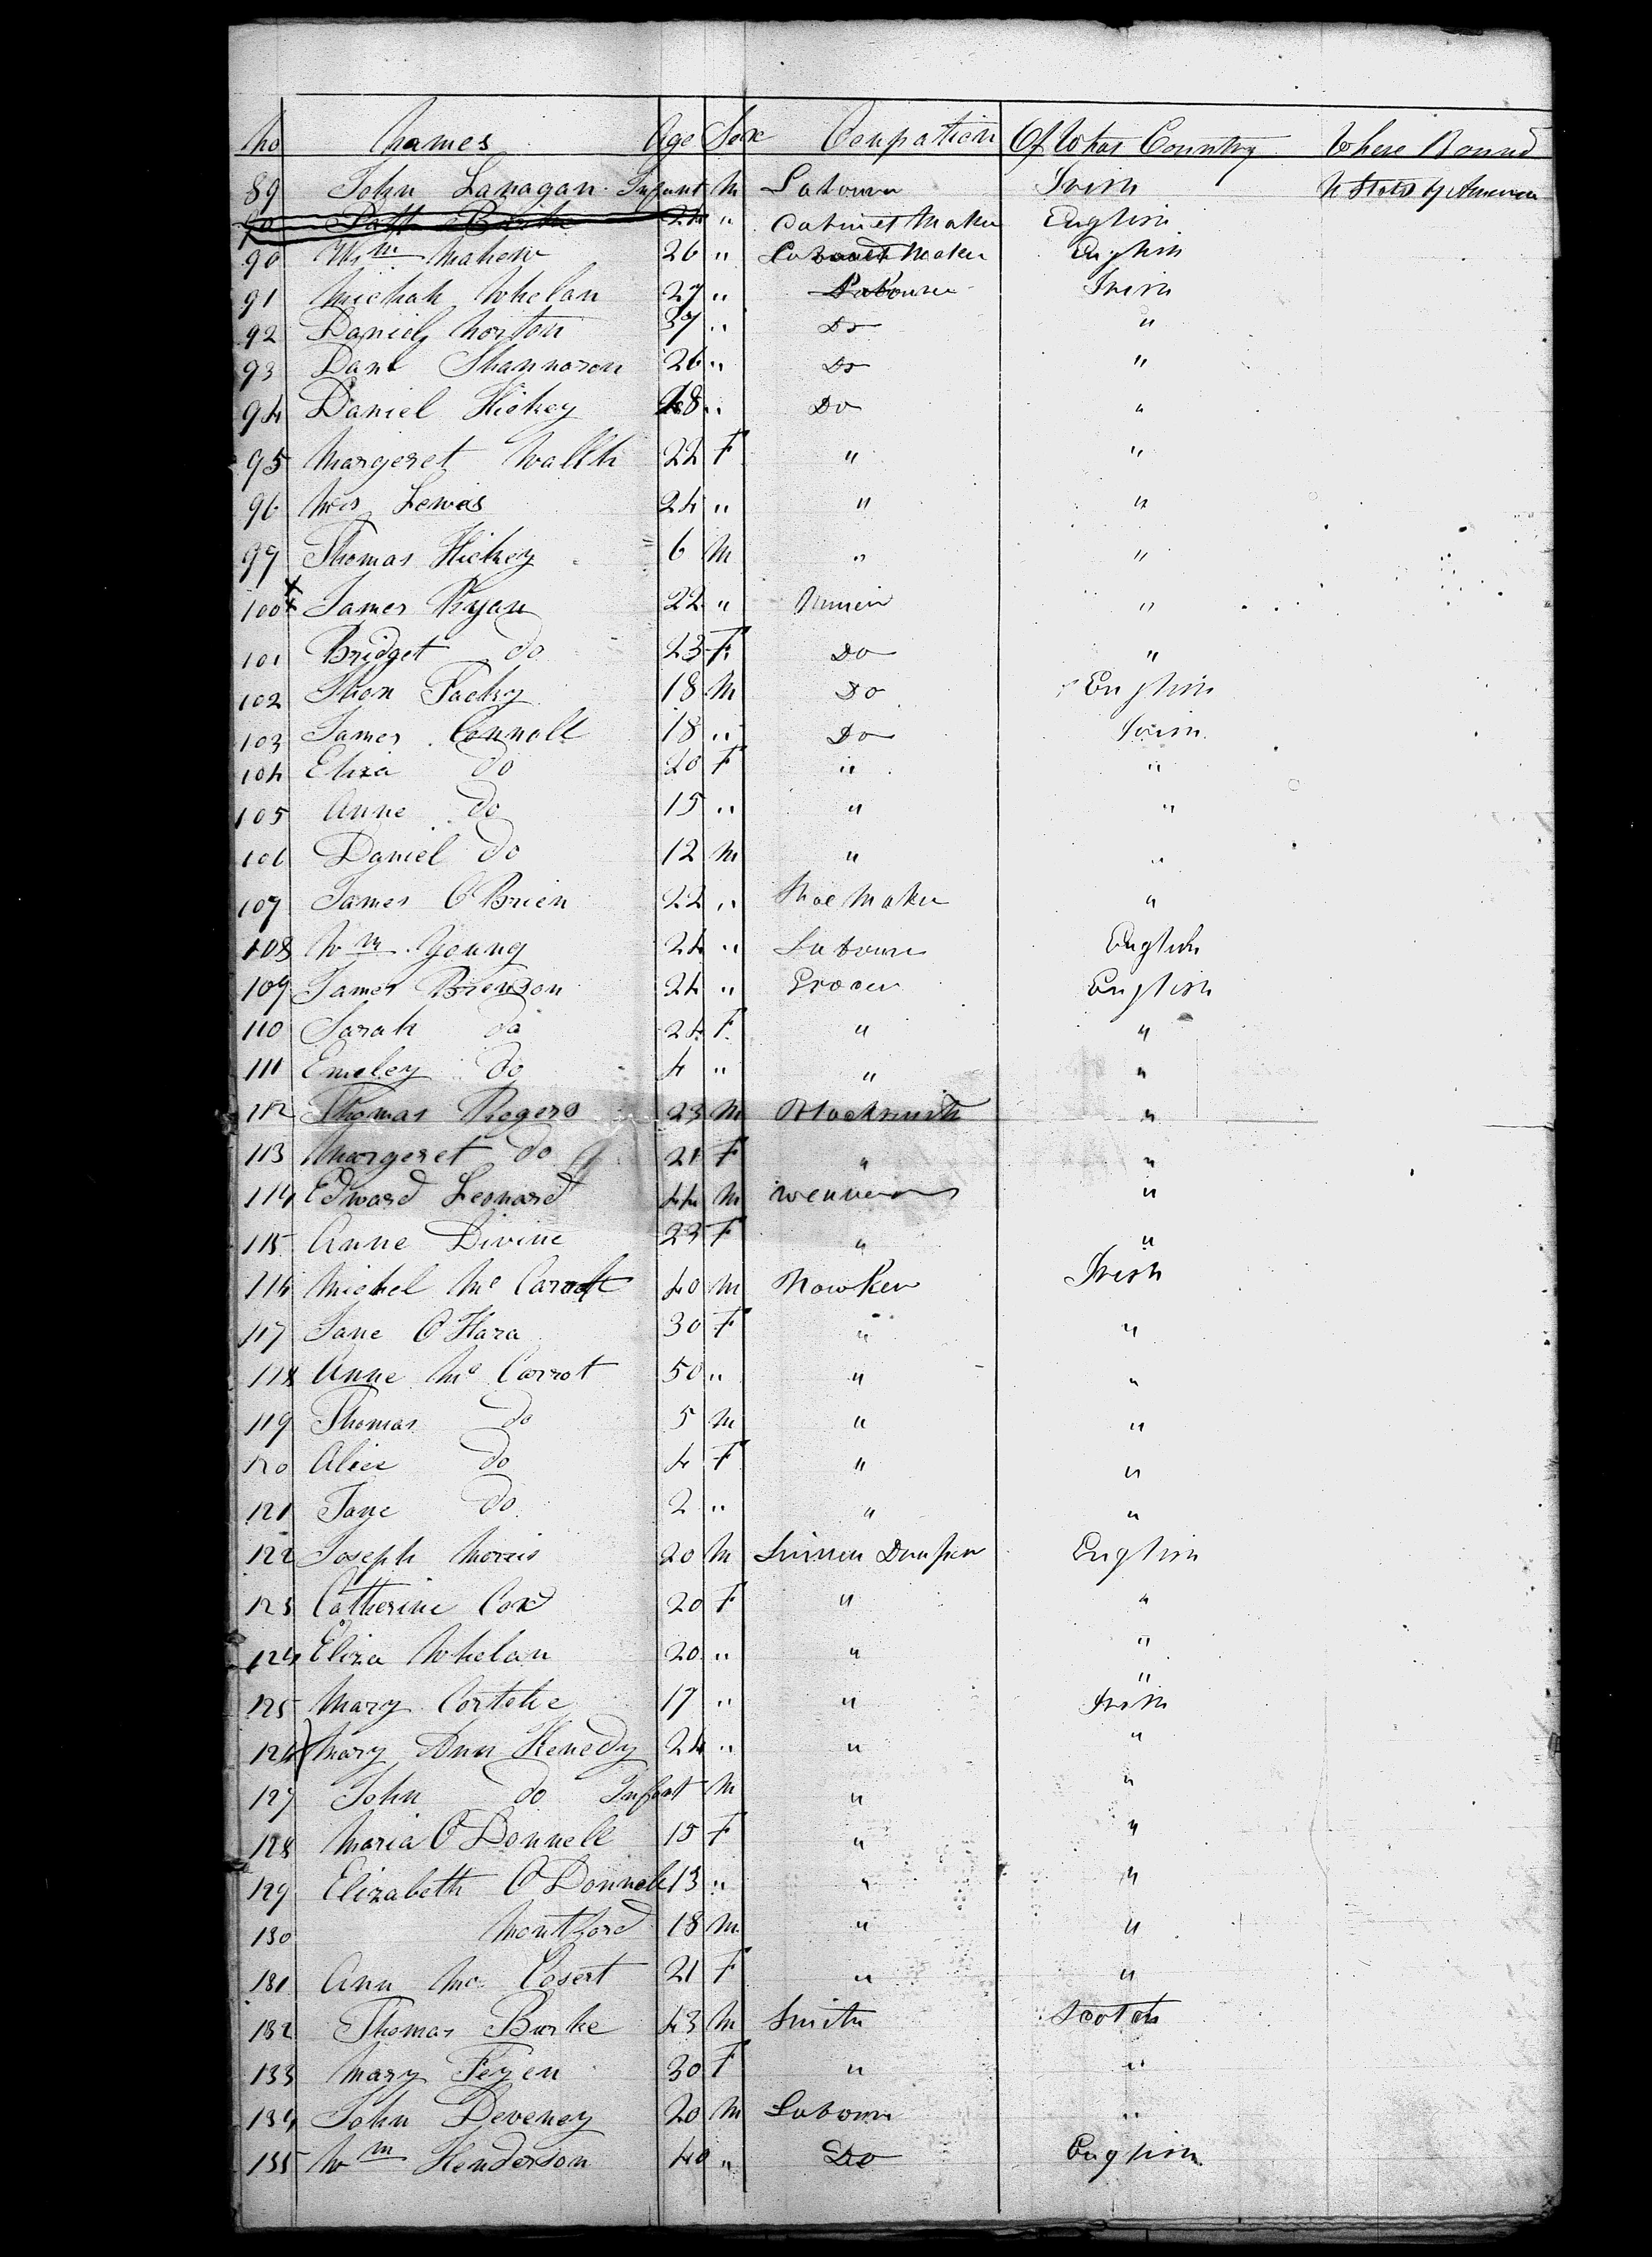 No Names Age Sex Occupation Of What Country Where Bound
89 John Lanagan Infant M Labourer Irish U States of America
90 24 " Cabinet Maker English
90 Wm Mahew 26 " Maker English
91 Michah Whelan 27 " Labourer Irish
92 Daniel Norton 37 " Do "
93 Danl Shannoson 26 " Do "
94 Daniel Hickey 18 " Do "
95 Margeret Wallth 22 F " "
96 Mrs Lewis 24 " " "
99 Thomas Hickey 6 M " "
100 James Ryan 22 " "
101 Bridget Do 23 F Do "
102 Thon 18 M Do English
103 James Connoll 18 " Do Irish
104 Eliza Do 20 F " "
105 Anne Do 15 " " "
106 Daniel Do 12 M " "
107 James O'Brien 22 " Shoe Maker "
108 Wm Young 24 " Labourer English
109 James Brenson 24 " Grocer English
110 Sarah Do 24 F " "
111 Emeley Do 4 " " "
112 Thomas Rogers 23 M Blacksmith "
113 Margeret Do 21 F " "
114 Edward Leonard 44 M "
115 Anne Divine 23 F " "
116 Michel Mc 40 M Hawker Irish
117 Jane O'Hara 30 F " "
118 Anne Mc Carrot 50 " " "
119 Thomas Do 5 M " "
120 Alice Do 4 F " "
121 Jane Do 2 " " "
122 Joseph Morris 20 M Linnen Draper English
123 Catherine Cox 20 F " "
124 Eliza Whelan 20 " " "
"
125 Mary 17 " " Irish
126 Mary Ann Kenedy 24 " " "
127 John Do Infant M " "
128 Maria O'Donnell 15 F " "
129 Elizabeth O'Donnell 13 " " "
130 Montford 18 M " "
131 Ann Mc Cosert 21 F " "
132 Thomas Burke 43 M Smith Scotch
133 Mary Feyen 30 F " "
134 John Deveney 20 M Labourer "
135 Wm Henderson 40 " Do English